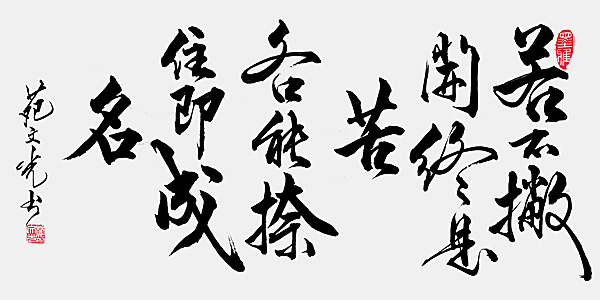 若不撇
開終是
苦
各能捺
住即成
名
苑文光书